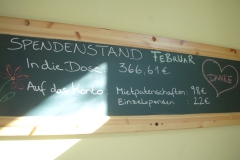 SPENDENSTAND FEBRUAR
In die Dose: 366,61€
Auf das Konto: Mietpatenschaften: 98€
Einzelspenden: 22€
DANKE